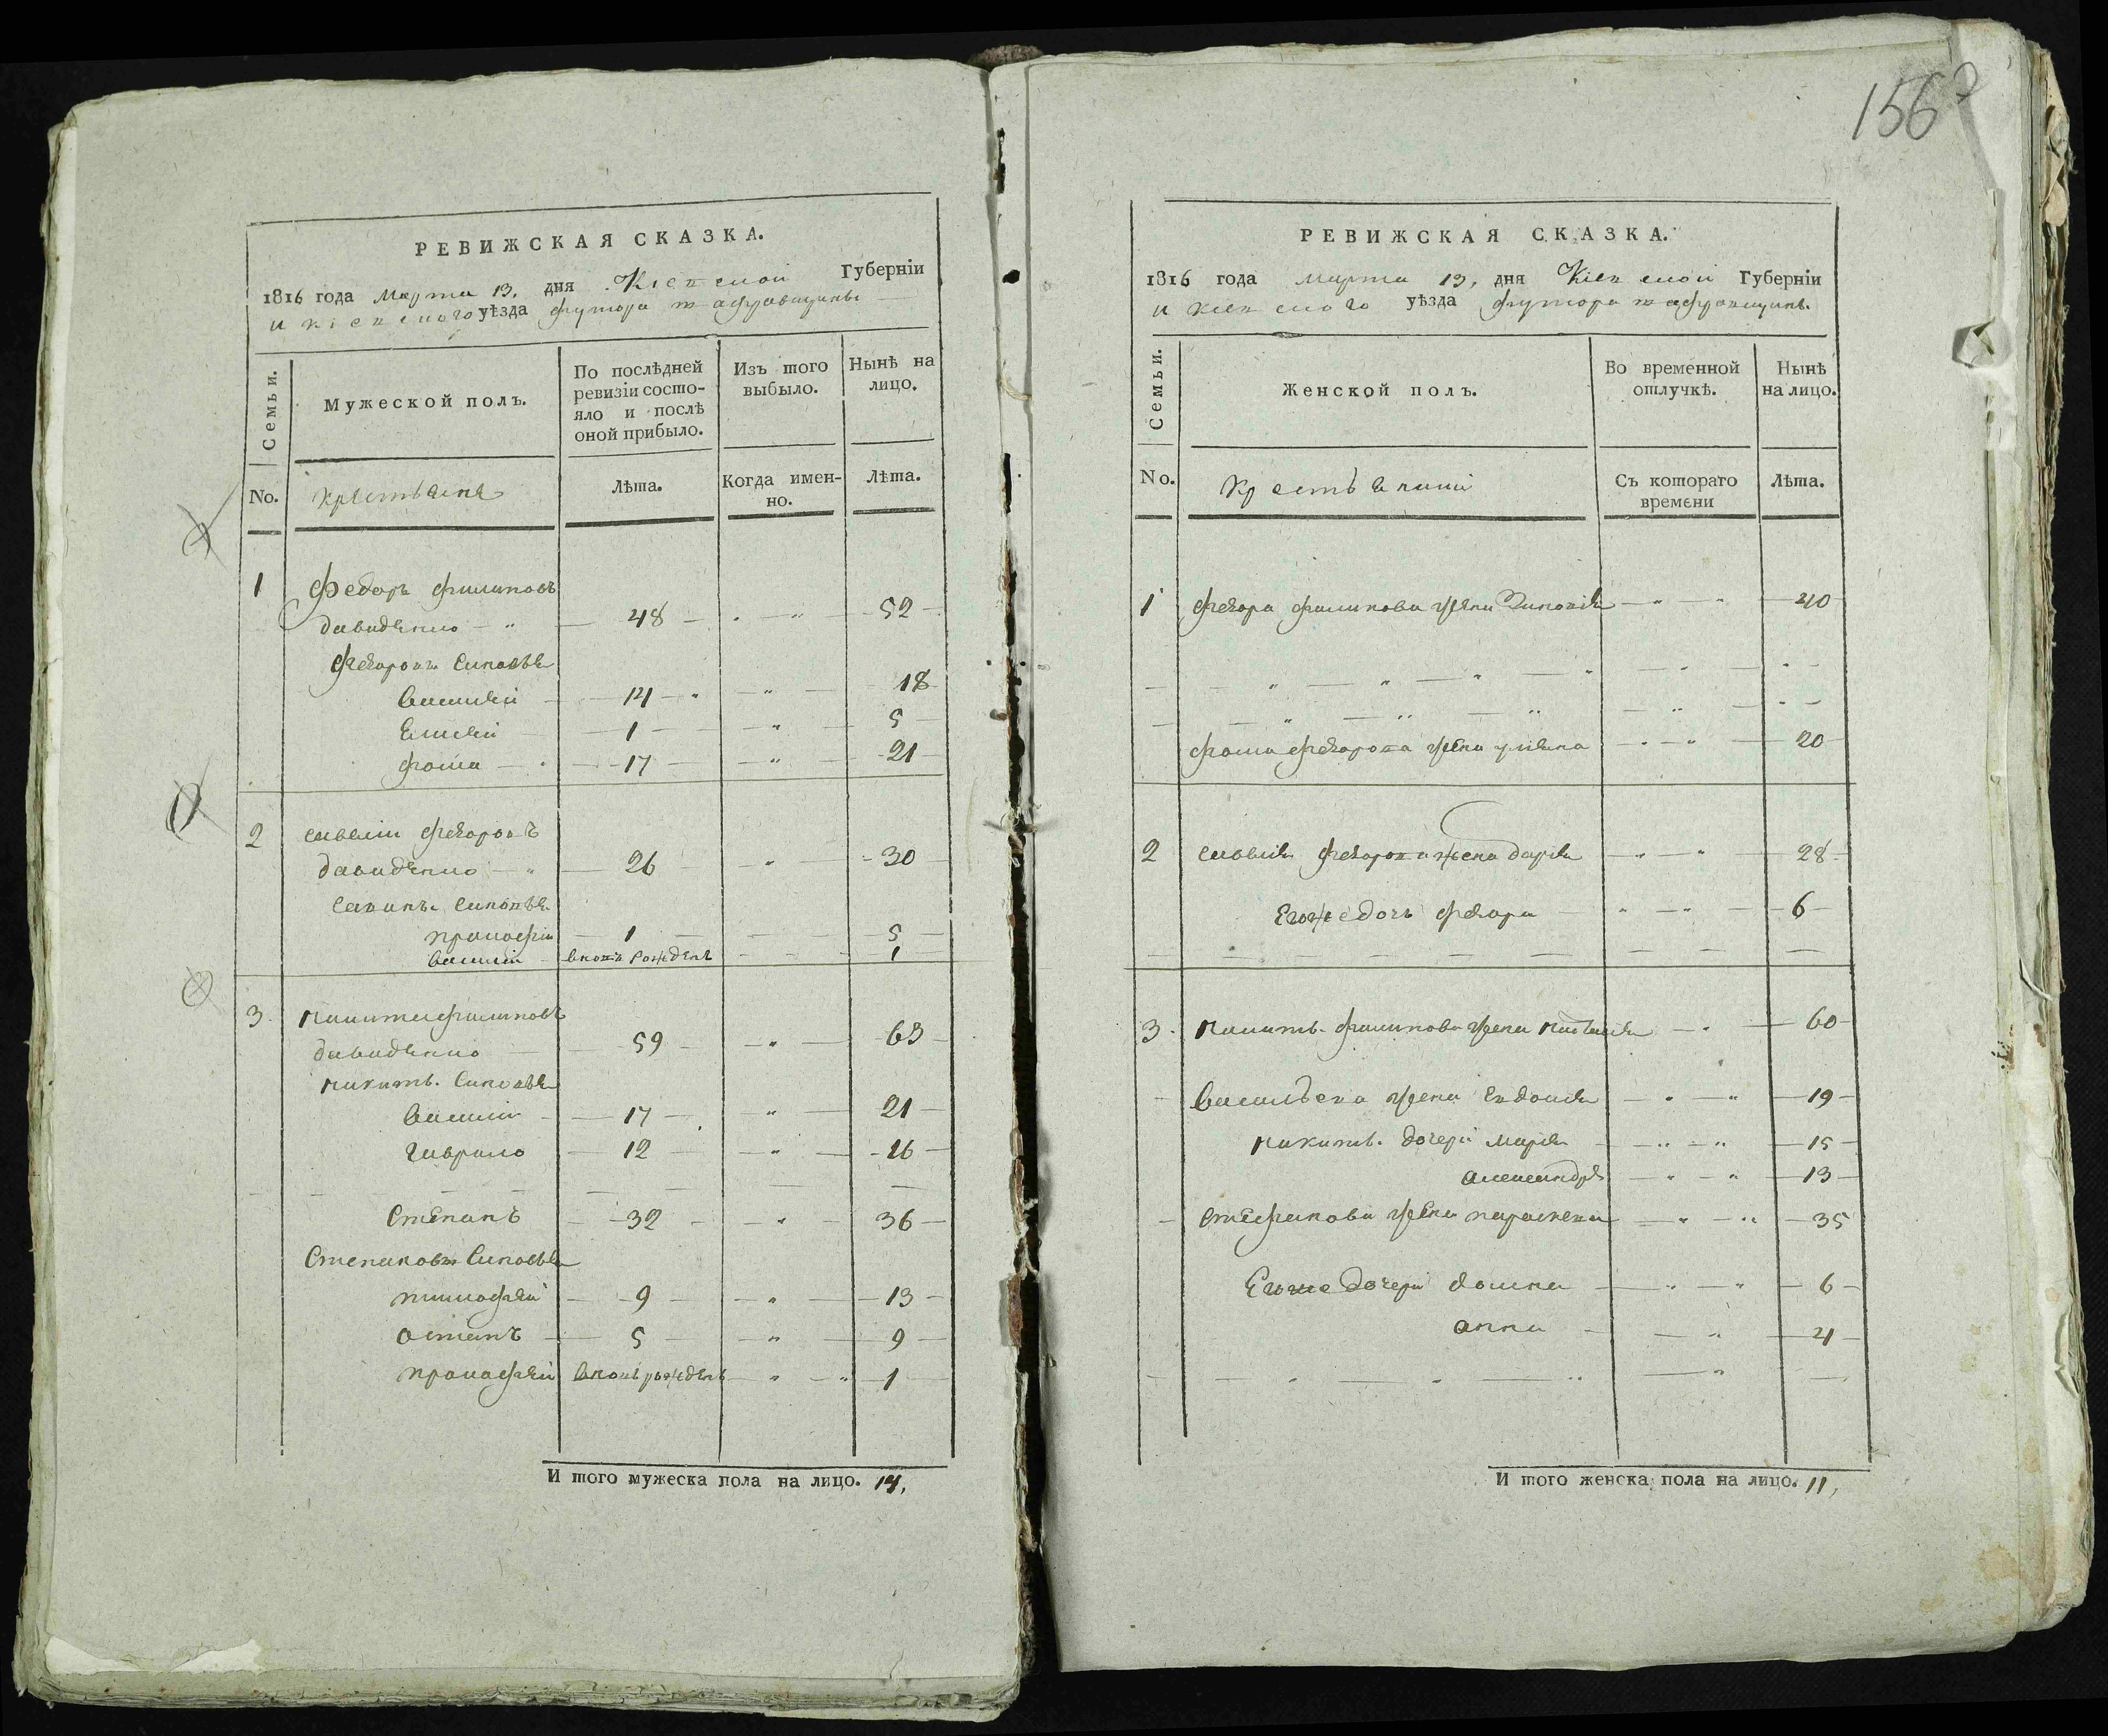 1567
РЕВИЖСКАЯ СКАЗКА.
1816 года Марта 13, дня Кіевской Губерніи
и кіевского уѣзда футора
Семьи.
Мужеской полъ.
По послѣдней ревизіи состояло и послѣ оной прибыло.
Изъ того выбыло.
Нынѣ на лицо.
No.
крестьяне
Лѣта.
Когда именно.
Лѣта.
1 Федоръ филиповъ
давиденко 48 52
федоровы синовья
василий 14 18
1 5
фома 17 21
2 савелій федоровъ
давиденко 26 30
савины синовья
прокофій 1 5
василій вновь рожденъ 1
3 никита филиповъ
давиденко 59 63
никиты синовья
василій 17 21
гаврило 12 16
степанъ 32 36
степановы синовья
тимофей 9 13
остапъ 5 9
прокофей вновь рожденъ 1
И того мужеска пола на лицо. 14,
РЕВИЖСКАЯ СКАЗКА.
1816 года марта 13, дня Кіевской Губерніи
и кіевского уѣзда футора
Семьи.
Женской полъ.
Во временной отлучкѣ.
Нынѣ на лицо.
No.
Съ котораго времени
Лѣта.
1 федора филипова жена Зиновія 40
фоми федорова жена уляна 20
2 савелія федорова жена дарія 28
Егоже дочь федора 6
3 никиты филипова жена настасія 60
василіева жена евдокія 19
никиты дочери марія 15
александра 13
стефанова жена параскева 35
Егоже дочери домна 6
анна 4
И того женска пола на лицо. 11,